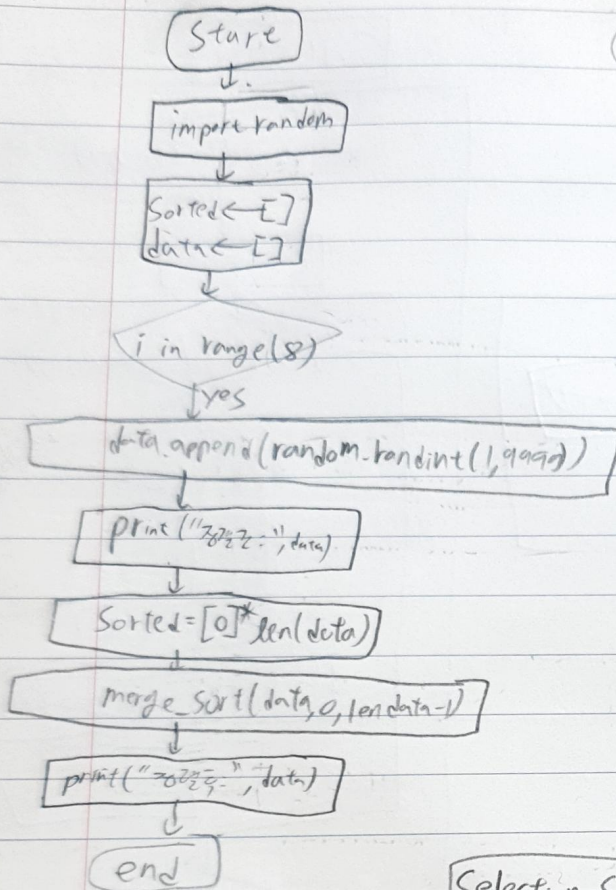 Start
import random
Sorted←[]
data←[]
i in range(8)
yes
data.append(random.randint(1,9999))
print("정렬전:",data)
Sorted=[0]*len(data)
merge_sort(data,0,lendata-1)
print("정렬후:",data)
end